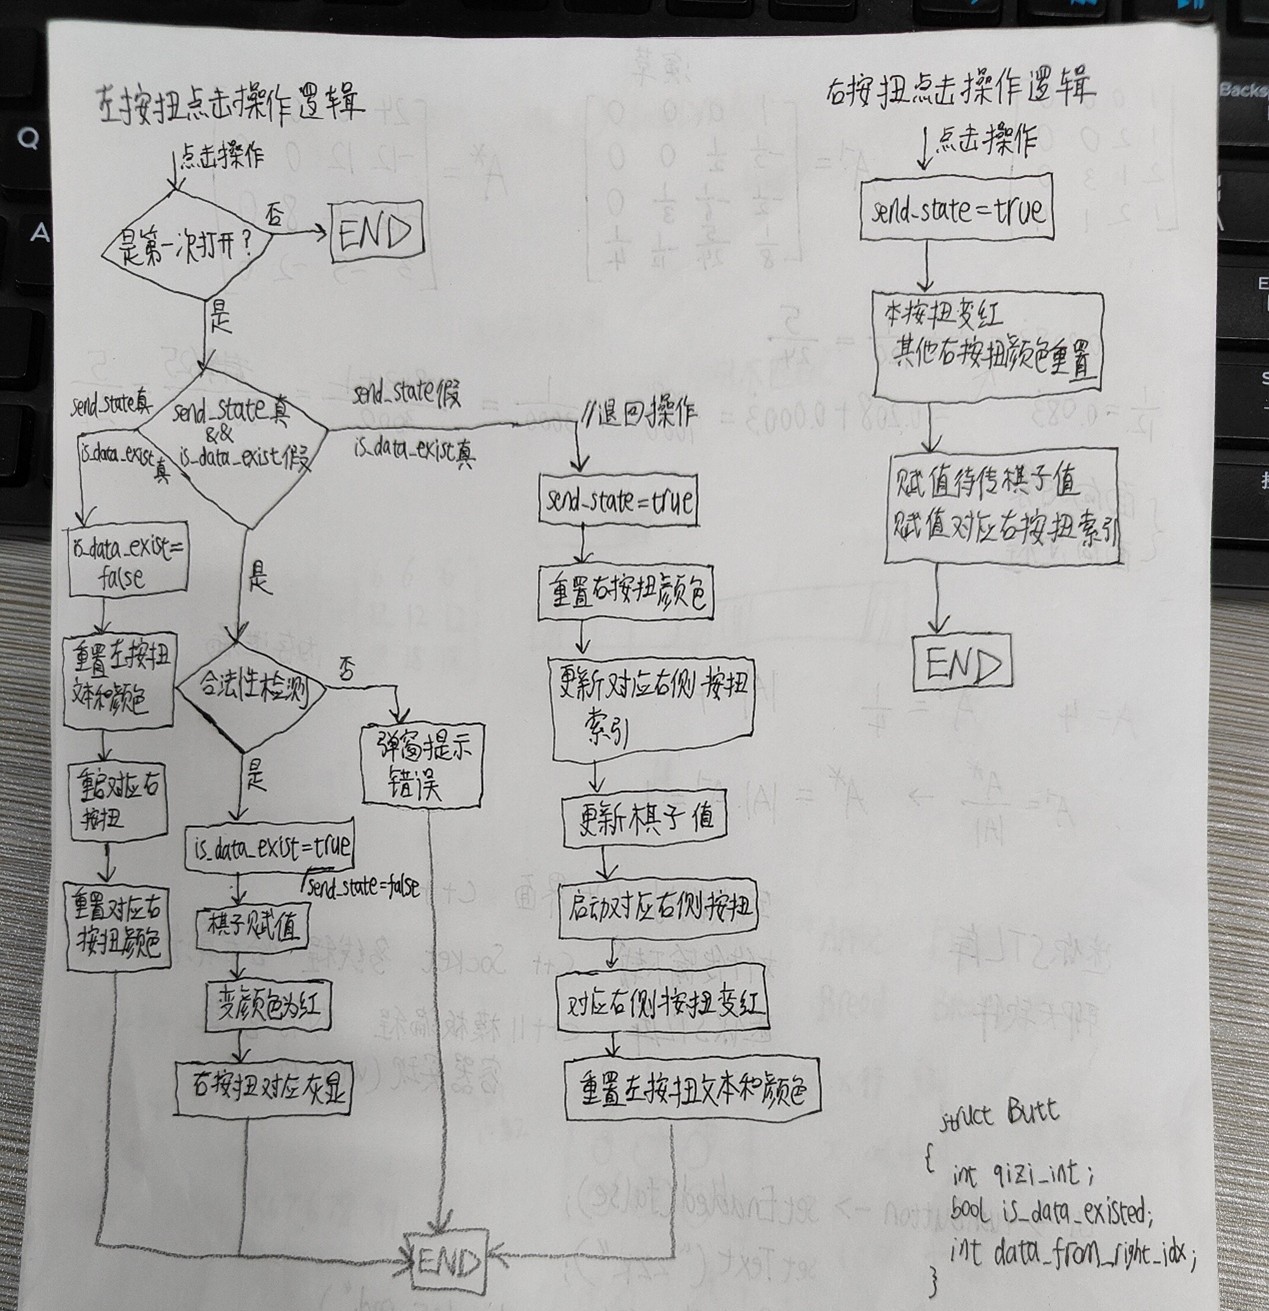 左按扭点击操作逻辑
点击操作
是第一次打开?
否
END
是
send_state真
is_data_exist
真
send_state真
&&
is_data_exist假
send_state假
is_data_exist真
//退回操作
is_data_exist=
false
重置左按扭
文本和颜色
重启对应右
按扭
重置对应右
按扭颜色
是
合法性检测
否
弹窗提示
错误
是
is_data_exist=true
send_state=false
棋子赋值
变颜色为红
右按扭对应灰显
send_state=true
重置右按扭颜色
更新对应右侧按扭
索引
更新棋子值
启动对应右侧按扭
对应右侧按扭变红
重置左按扭文本和颜色
END
右按扭点击操作逻辑
点击操作
send_state=true
本按扭变红
其他右按扭颜色重置
赋值待传棋子值
赋值对应右按扭索引
END
struct Butt
{
int qizi_int;
bool is_data_existed;
int data_from_right_idx;
}
Q
A
Backs